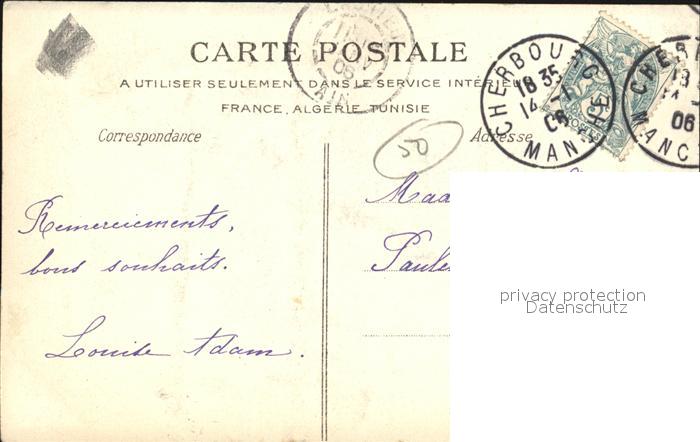 CARTE POSTALE
A UTILISER SEULEMENT DANS LE SERVICE INTÉRIEUR
FRANCE, ALGÉRIE, TUNISIE
Correspondance
Adresse
50
CHERBOURG
18 35
14 -1
06
MANCHE
CHER
18
06
MANC
AIN
Remerciements,
bons souhaits.
Louise Adam.
Maa
Paule
privacy protection
Datenschutz